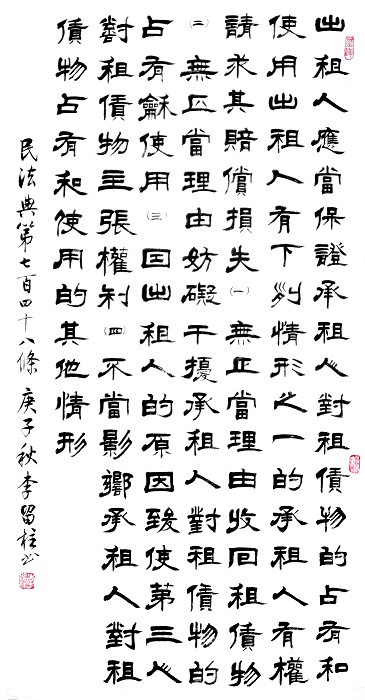 出租人應當保證承租人對租賃物的占有和
使用出租人有下列情形之一的承租人有權
請求其賠償損失(一)無正當理由收回租賃物
(二)無正當理由妨礙干擾承租人對租賃物的
占有龢使用(三)因出租人的原因致使第三人
對租賃物主張權利(四)不當影響承租人對租
賃物占有和使用的其他情形
民法典第七百四十八條 庚子秋李留柱书